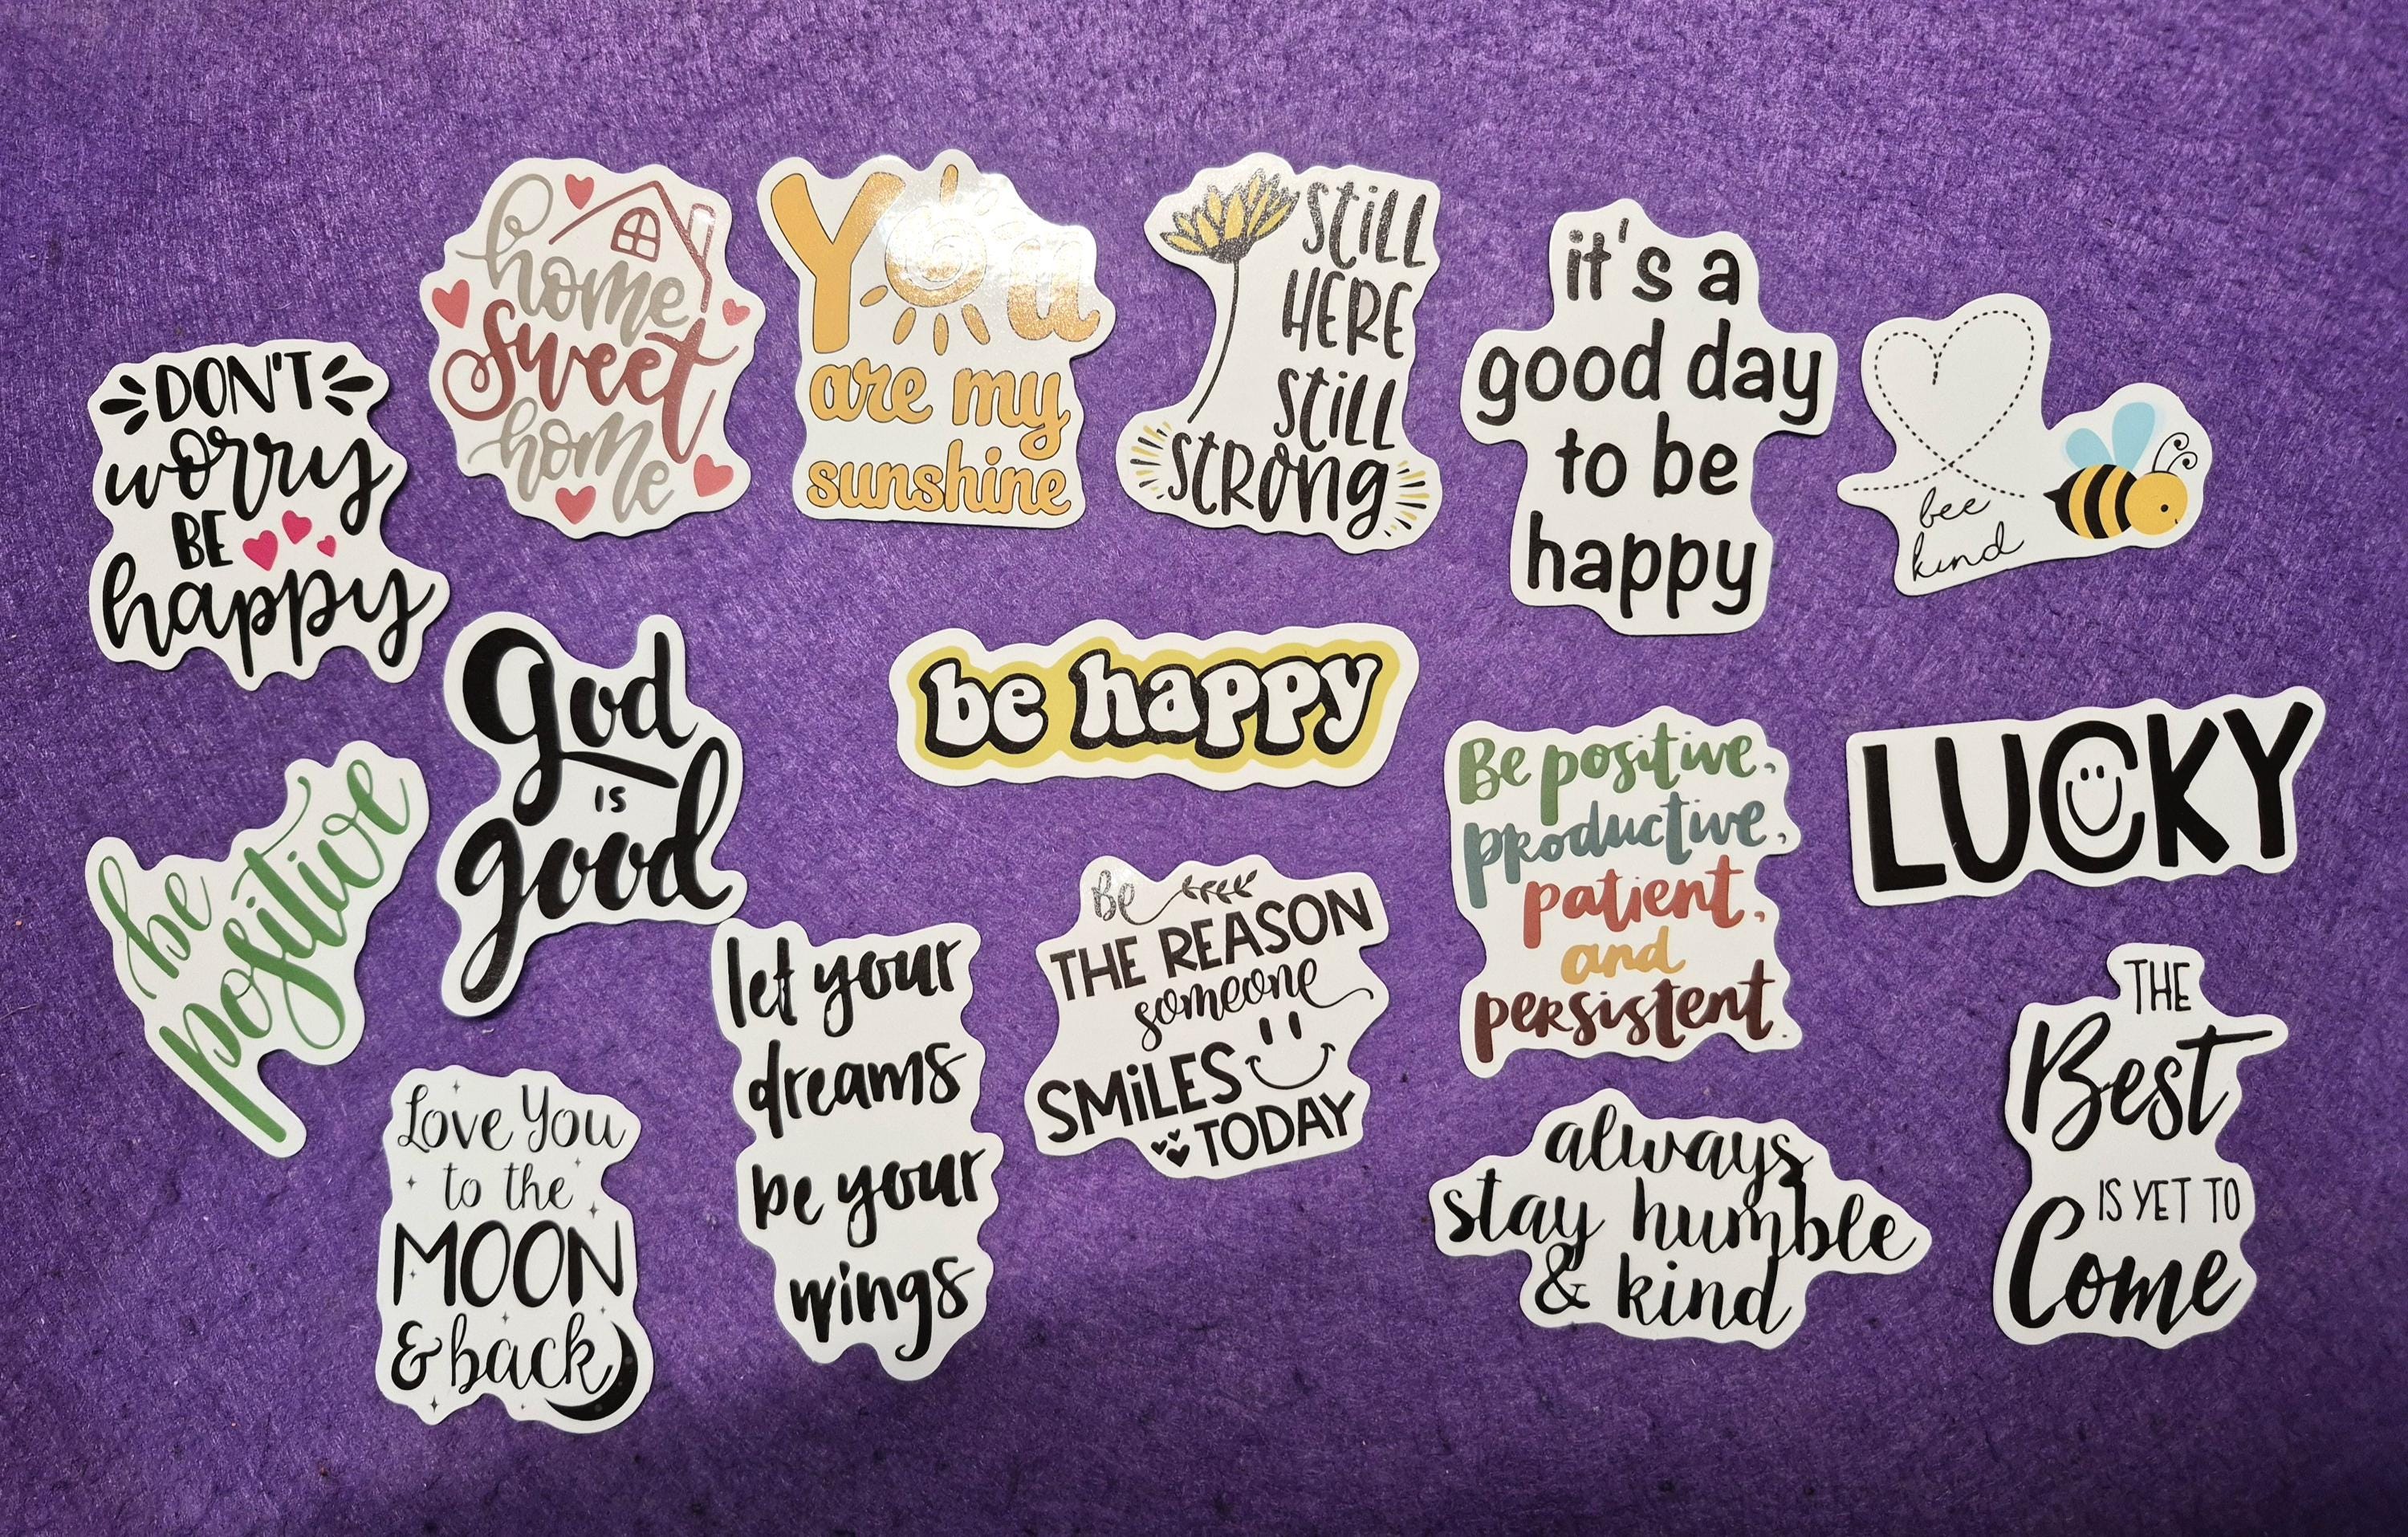 DON'T
worry
BE
happy
home
sweet
home
You
are my
sunshine
STILL
HERE
STILL
STRONG
it's a
good day
to be
happy
bee
kind
be
positive
God
is
good
be happy
Be positive,
productive,
patient,
and
persistent.
LUCKY
Love You
to the
MOON
& back
let your
dreams
be your
wings
Be
THE REASON
someone
SMiLES
TODAY
always
stay humble
& kind
THE
Best
IS YET TO
Come